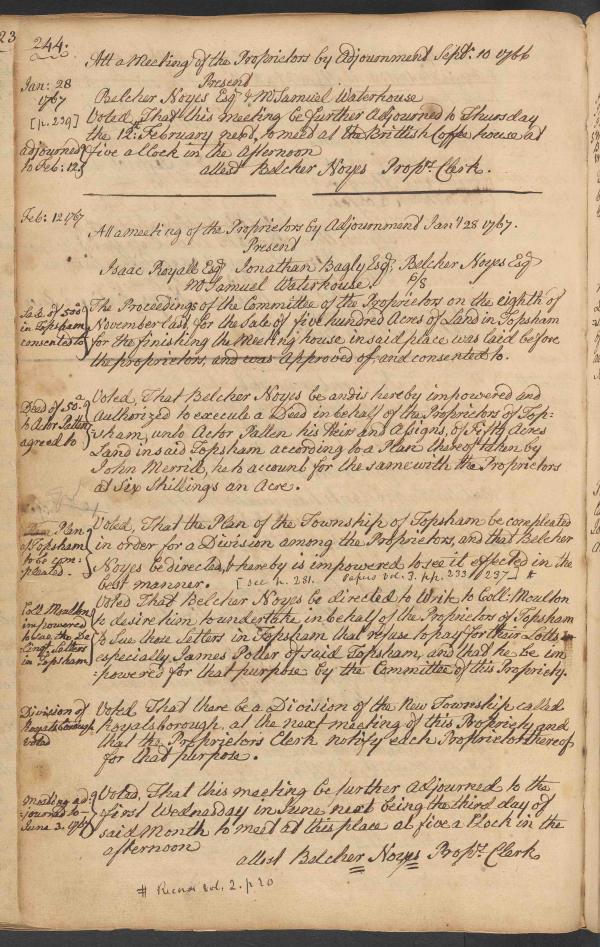 23
244.
Att a Meeting of the Proprietors by Adjournment Sept: 10 1766
Present
Jan: 28
1767
[p. 239]
Belcher Noyes Esqr & Mr Samuel Waterhouse
Voted, That this meeting be further Adjourned to Thursday
the 12th February next, to meet at the Brittish Coffee house at
adjourned
to Feb: 12
five a Clock in the Afternoon
attest Belcher Noyes Propr. Clerk.
Feb: 12 1767
Att a meeting of the Proprietors by Adjournment Jany 28 1767.
Present
Isaac Royall Esqr Jonathan Bagly Esqr, Belcher Noyes Esqr
Mr Samuel Waterhouse.
Sale of 500a
in Topsham
consented to
The Proceedings of the Committee of the Proprietors on the eighth of
November last, for the Sale of five hundred Acres of Land in Topsham
for the finishing the Meeting house in said place was laid before
the proprietors, and was Approved of and consented to.
Deed of 50.a
to Actor Patten
agreed to
Voted, That Belcher Noyes be and is hereby impowered and
Authorized to execute a Deed in behalf of the Proprietors of Top:
:sham, unto Actor Patten his Heirs and Assigns, of Fifty Acres
Land in said Topsham according to a Plan thereof taken by
John Merrill, he to account for the same with the Proprietors
at Six Shillings an Acre.
Plan
of Topsham
to be com:
:pleated.
Voted, That the Plan of the Township of Topsham be compleated
in order for a Division among the Proprietors, and that Belcher
Noyes be directed, & hereby is impowered to see it effected in the
best manner. [see p. 281. Papers vol. 3. pp. 233 / 237] #
Coll. Moulton
impowered
to sue the De
:linqt Settlers
in Topsham
Voted That Belcher Noyes be directed to Write to Coll: Moulton
to desire him to undertake in behalf of the Proprietors of Topsham
to Sue those Setters in Topsham that refuse to pay for their Lotts
especially James Potter of said Topsham, and that he be im
:powered for that purpose by the Committee of this Propriety.
Division of
Royalsborough
Voted
Voted That there be a Division of the New Township called
Royalsborough, at the next meeting of this Propriety and
that the Proprietors Clerk notify each Proprietor thereof
for that purpose.
meeting ad:
:journed to
June 3. 1767
Voted, That this meeting be further Adjourned to the
first Wednesday in June next being the third day of
said Month to meet at this place at five a Clock in the
afternoon
attest Belcher Noyes Propr. Clerk
# Records vol. 2. p 20